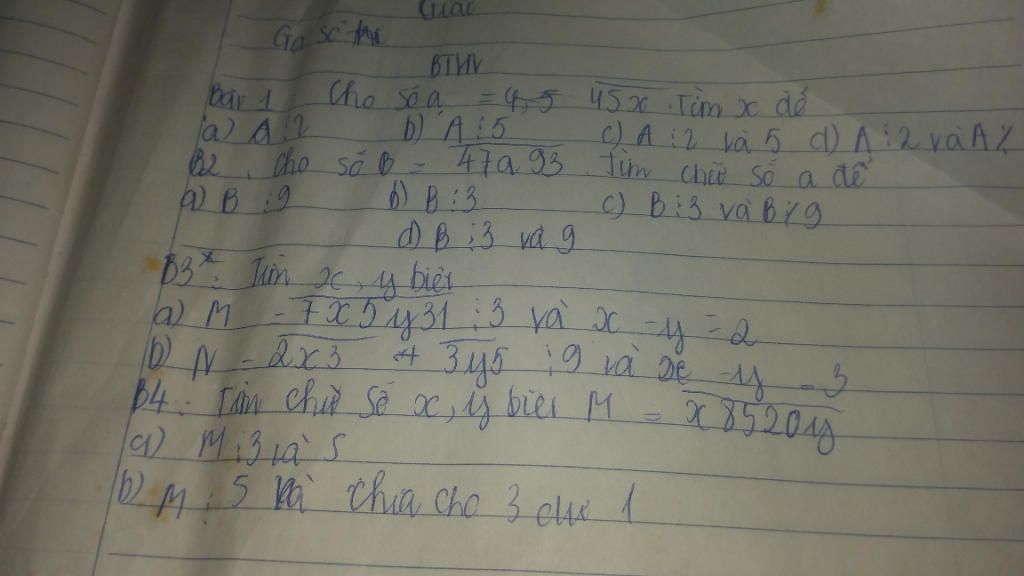 BTVN
Bài 1 Cho số a = 4,5 45x. Tìm x để
a) A ⋮ 2 b) A ⋮ 5 c) A ⋮ 2 và 5 d) A ⋮ 2 và A ⋮̸
B2. Cho số B = 47a93. Tìm chữ số a để
a) B ⋮ 9 b) B ⋮ 3 c) B ⋮ 3 và B ⋮̸ 9
d) B ⋮ 3 và 9
B3*: Tìm x, y biết
a) M = 7x5y31 ⋮ 3 và x - y = 2
b) N = 2x3 + 3y5 ⋮ 9 và x - y = 3
B4: Tìm chữ số x, y biết M = x8520y
a) M ⋮ 3 và 5
b) M ⋮ 5 và chia cho 3 dư 1